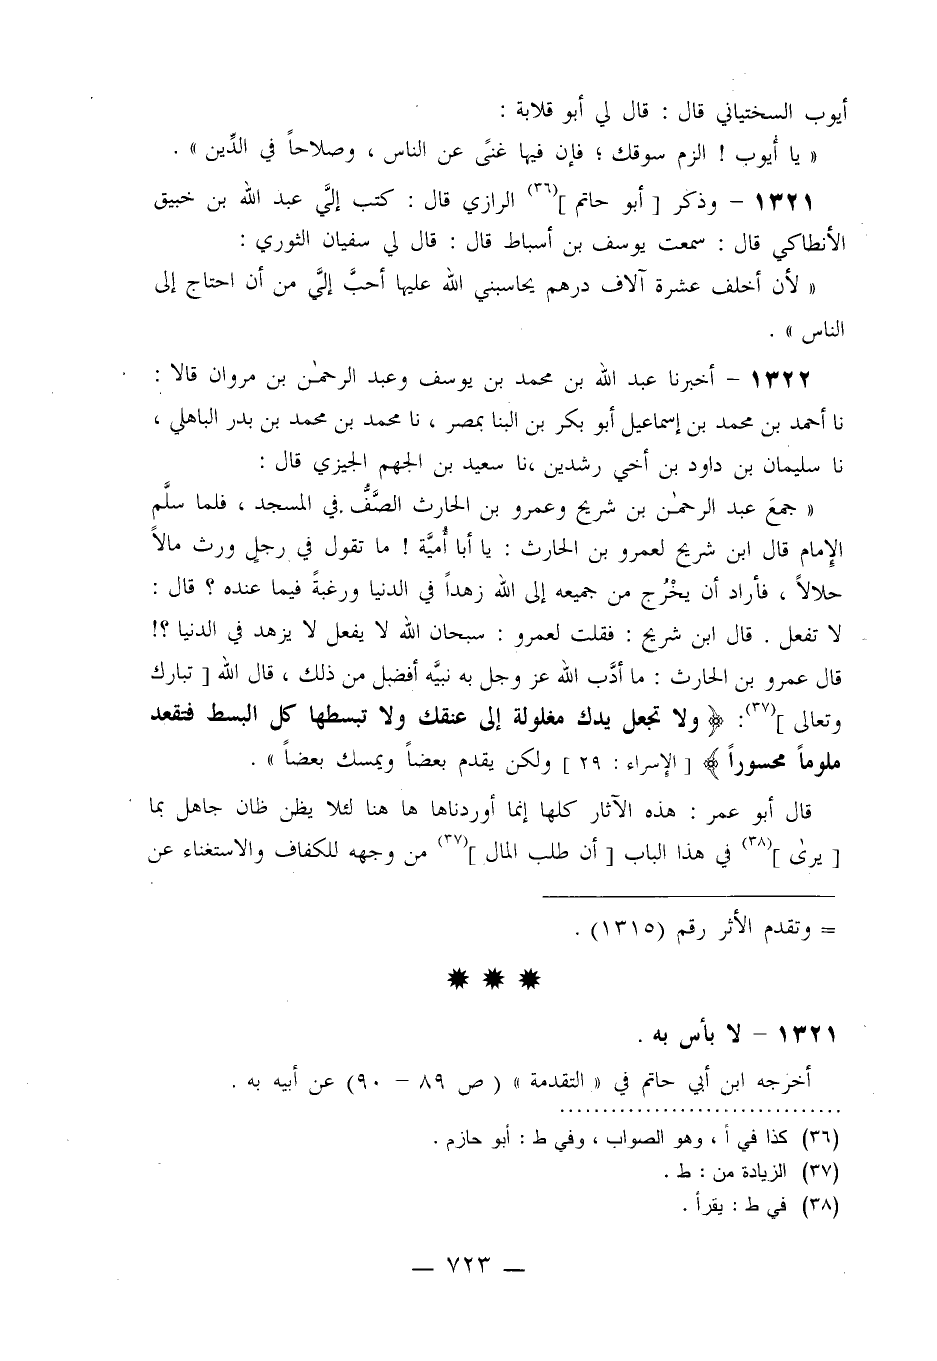 أيوب السختياني قال : قال لي أبو قلابة :
« يا أُيوب ! الزم سوقك ؛ فإن فيها غنًى عن الناس ، وصلاحاً في الدِّين » .
١٣٢١ – وذكر [ أبو حاتم ](٣٦) الرازي قال : كتب إليَّ عبد الله بن خبيق
الأنطاكي قال : سمعت يوسف بن أسباط قال : قال لي سفيان الثوري :
« لأن أخلف عشرة آلاف درهم يحاسبني الله عليها أحبَّ إليَّ من أن احتاج إلى
الناس » .
١٣٢٢ – أخبرنا عبد الله بن محمد بن يوسف وعبد الرحمٰن بن مروان قالا :
نا أحمد بن محمد بن إسماعيل أبو بكر بن البنا بمصر ، نا محمد بن محمد بن بدر الباهلي ،
نا سليمان بن داود بن أخي رشدين ،نا سعيد بن الجهم الجيزي قال :
« جمعَ عبد الرحمٰن بن شريح وعمرو بن الحارث الصَّفُّ في المسجد ، فلما سلَّم
الإِمام قال ابن شريح لعمرو بن الحارث : يا أبا أُميَّة ! ما تقول في رجلٍ ورث مالاً
حلالاً ، فأراد أن يخْرُج من جميعه إلى الله زهداً في الدنيا ورغبةً فيما عنده ؟ قال :
لا تفعل . قال ابن شريح : فقلت لعمرو : سبحان الله لا يفعل لا يزهد في الدنيا ؟!
قال عمرو بن الحارث : ما أدَّب الله عز وجل به نبيَّه أفضل من ذلك ، قال الله [ تبارك
وتعالى ](٣٧): ﴿ ولا تجعل يدك مغلولة إلى عنقك ولا تبسطها كل البسط فتقعد
ملوماً محسوراً ﴾ [ الإسراء : ٢٩ ] ولكن يقدم بعضاً ويمسك بعضاً » .
قال أبو عمر : هذه الآثار كلها إنما أوردناها ها هنا لئلا يظن ظان جاهل بما
[ يرىٰ ](٣٨) في هذا الباب [ أن طلب المال ](٣٧) من وجهه للكفاف والاستغناء عن
= وتقدم الأثر رقم (١٣١٥) .
١٣٢١ – لا بأس به .
أخرجه ابن أبي حاتم في « التقدمة » ( ص ٨٩ – ٩٠) عن أبيه به .
(٣٦) كذا في أ ، وهو الصواب ، وفي ط : أبو حازم .
(٣٧) الزيادة من : ط .
(٣٨) في ط : يقرأ .
— ٧٢٣ —